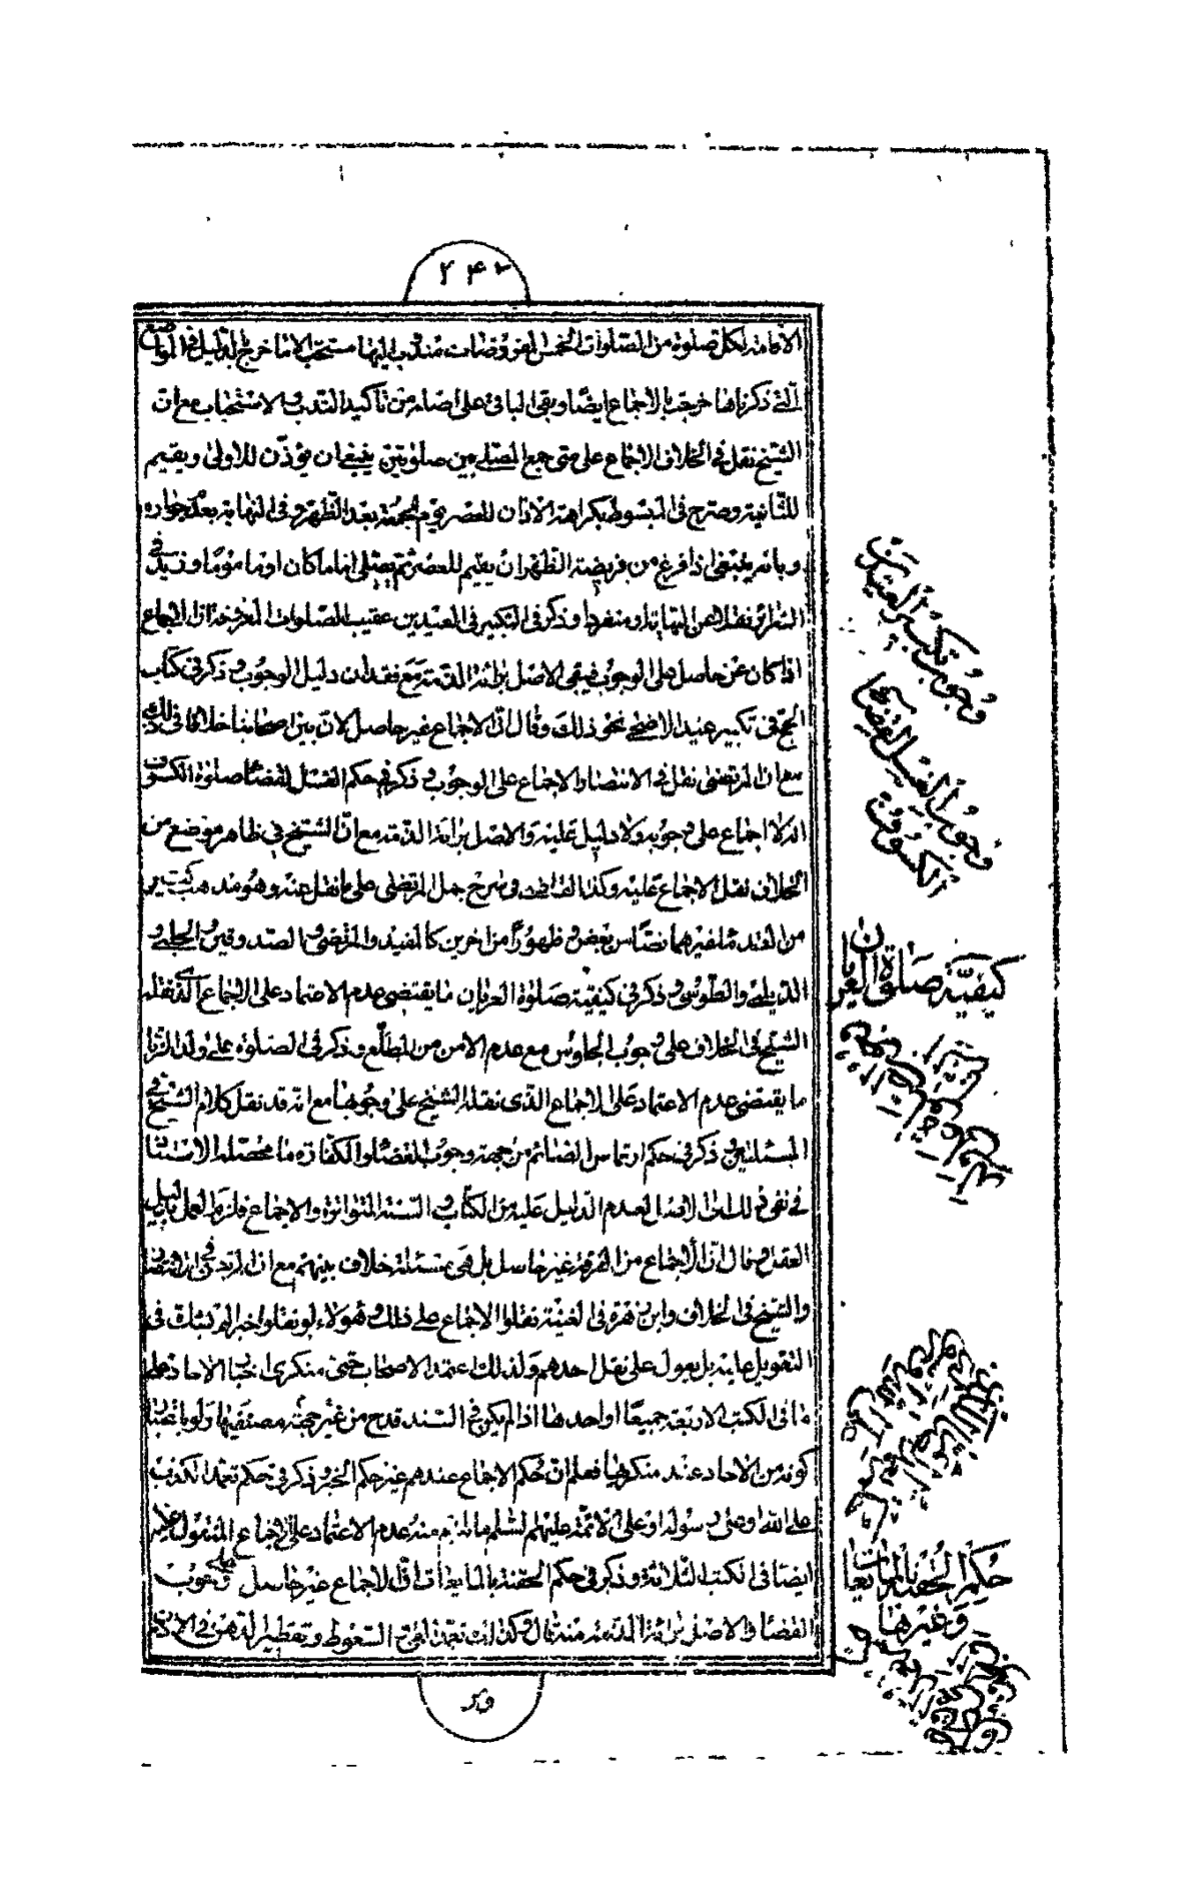 ٢٤٢
الاقامة لكل صلوة من الصلوات الخمس المفروضات مندوب اليها مستحب الا ما خرج بالدليل في المواضع
التي ذكرناها خرجت بالاجماع ايضا وبقي الباقي على اصله من تأكيد الندب والاستحباب مع ان
الشيخ نقل في الخلاف الاجماع على متى جمع المصلي بين صلوتين ينبغي ان يؤذن للاولى ويقيم
للثانية وصرح في المبسوط بكراهة الاذان للعصر يوم الجمعة بعد الظهر وفي النهاية بعدم جوازه
وبانه ينبغي اذا فرغ من فريضة الظهر ان يقيم للعصر ثم يصلي اماما كان او ماموما وفيه في
السرائر نقلا عن النهاية او منفردا وذكر في التكبير في العيدين عقيب الصلوات المفروضة ان الاجماع
اذا كان غير حاصل على الوجوب فبقي الاصل برائة الذمة مع فقدان دليل الوجوب وذكر في كتاب
الحج في تكبير عيد الاضحى نحو ذلك وقال ان الاجماع غير حاصل لان بين اصحابنا خلافا في ذلك
مع ان المرتضى نقل في الانتصار الاجماع على الوجوب وذكر في حكم الغسل لقضاء صلوة الكسوف
انه لا اجماع على وجوبه ولا دليل عليه والاصل برائة الذمة مع ان الشيخ في ظاهر موضع من
الخلاف نقل الاجماع عليه وكذا القاضي في شرح جمل المرتضى على ما نقل عنه وهو مذهب كثير
من القدماء غيرهما نصا من بعض وظهورا من اخرين كالمفيد والمرتضى والصدوقين والحلبي و
الديلمي والطوسي وذكر في كيفية صلوة العريان ما يقتضي عدم الاعتماد على الاجماع الذي نقله
الشيخ في الخلاف على وجوب الجلوس مع عدم الامن من المطلع وذكر في الصلوة على ولد الزنا
ما يقتضي عدم الاعتماد على الاجماع الذي نقله الشيخ على وجوبها مع انه قد نقل كلام الشيخ في
المسئلتين وذكر في حكم ارتماس الصائم من جهة وجوب القضاء والكفارة ما محصله الاستناد
في نفي ذلك الى الاصل لعدم الدليل عليه من الكتاب والسنة المتواترة والاجماع فلزم العمل بدليل
العقل وقال ان الاجماع من الفرقة غير حاصل بل هي مسئلة خلاف بينهم مع ان المرتضى في الانتصار
والشيخ في الخلاف وابن زهرة في الغنية نقلوا الاجماع على ذلك وهؤلاء لو نقلوا خبرا لم نشك في
التعويل عليه بل يعول على نقل احدهم ولذلك اعتمد الاصحاب حتى منكري اخبار الاحاد على
ما في الكتب الاربعة جميعا او احدها اذا لم يكن في السند قدح من غير جهة مصنفيها ولو باعتبار
كونه من الاحاد عند منكريها فعلم ان حكم الاجماع عندهم غير حكم الخبر وذكر في حكم تعمد الكذب
على الله او على رسوله او على الائمة عليهم السلم ما يلزم منه عدم الاعتماد على الاجماع المنقول عليه
ايضا في الكتب الثلاثة وذكر في حكم الحقنة بالمايعات ان الاجماع غير حاصل على وجوب
القضاء والاصل برائة الذمة منه قال وكذلك تعمد القيء السعوط وتقطير الدهن في الاذن
وجوب تكبير العيدين
وجوب الغسل لقضاء
الكسوف
كيفية صلاة العريان
حكم الحقنة بالمايعات
وغيرها